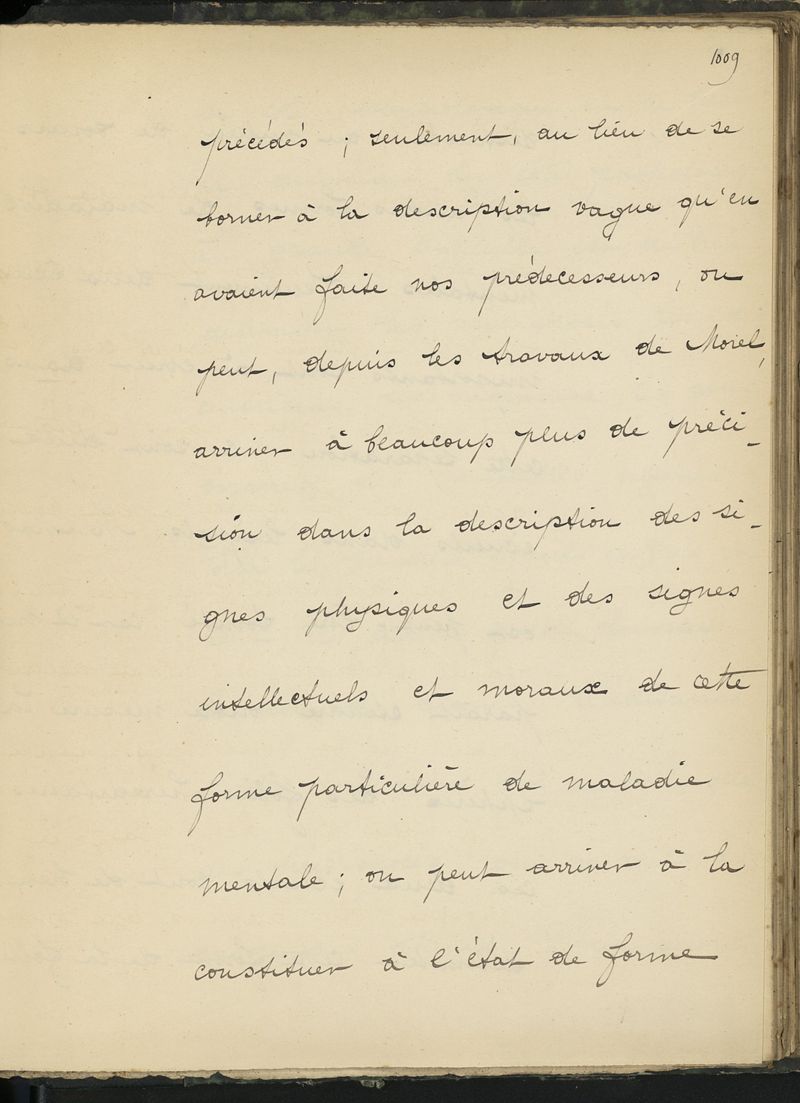 1009
précédés ; seulement, au lieu de se
borner à la description vague qu'en
avaient faite nos prédecesseurs, on
peut, depuis les travaux de Morel,
arriver à beaucoup plus de préci-
sion dans la description des si-
gnes physiques et des signes
intellectuels et moraux de cette
forme particulière de maladie
mentale ; on peut arriver à la
constituer à l'état de forme